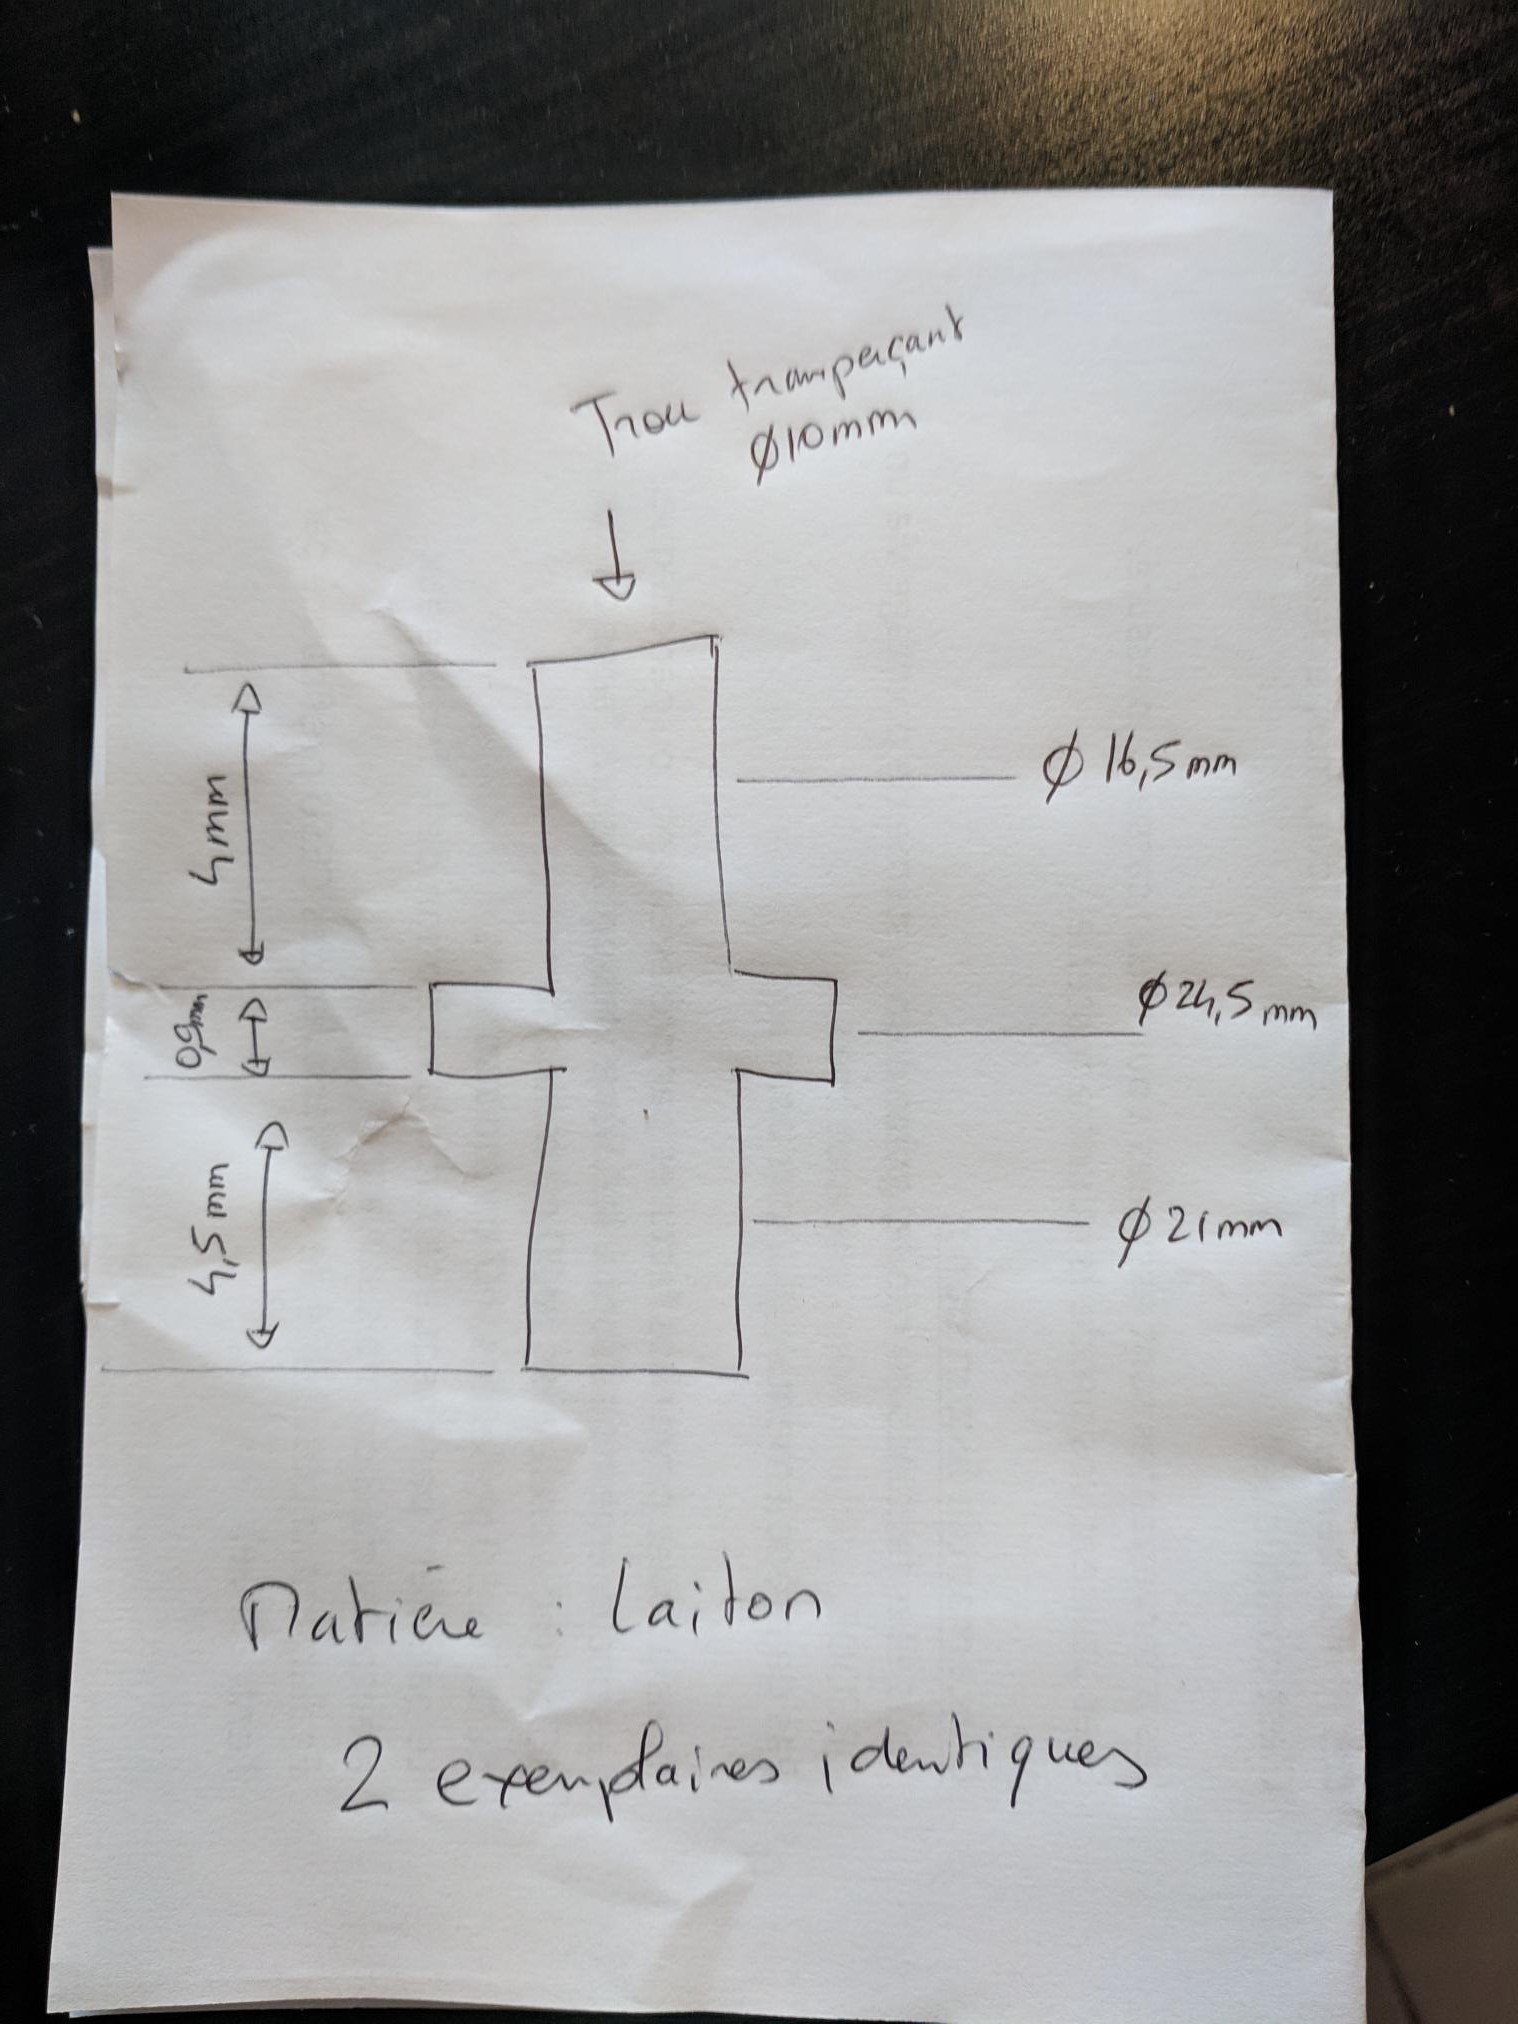 Trou transperçant
Ø10mm
Ø 16,5mm
4mm
Ø24,5mm
Ø21mm
4,5mm
Matière : laiton
2 exemplaires identiques